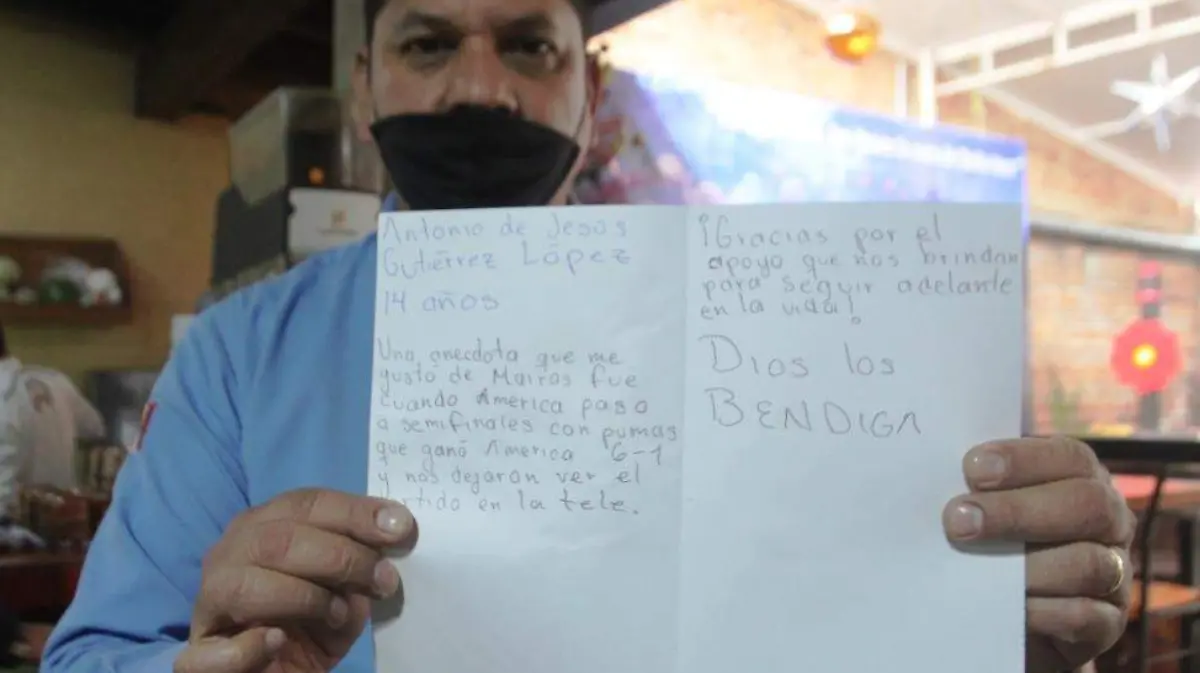 Antonio de Jesús
Gutiérrez López
14 años
Una anecdota que me
gustó de Mairos fue
cuando America paso
a semifinales con pumas
que ganó America 6-1
y nos dejaron ver el
partido en la tele.
¡Gracias por el
apoyo que nos brindan
para seguir adelante
en la vida!
Dios los
BENDIGA